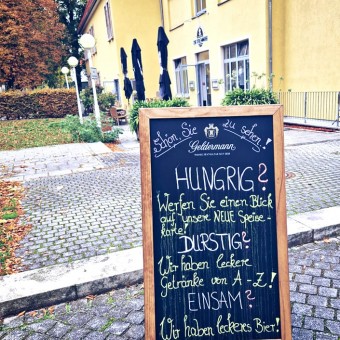 Schön, Sie zu sehen!
Geldermann
HUNGRIG?
Werfen Sie einen Blick
auf unsere NEUE Speise-
karte!
DURSTIG?
Wir haben leckere
Getränke von A-Z!
EINSAM?
Wir haben leckeres Bier!